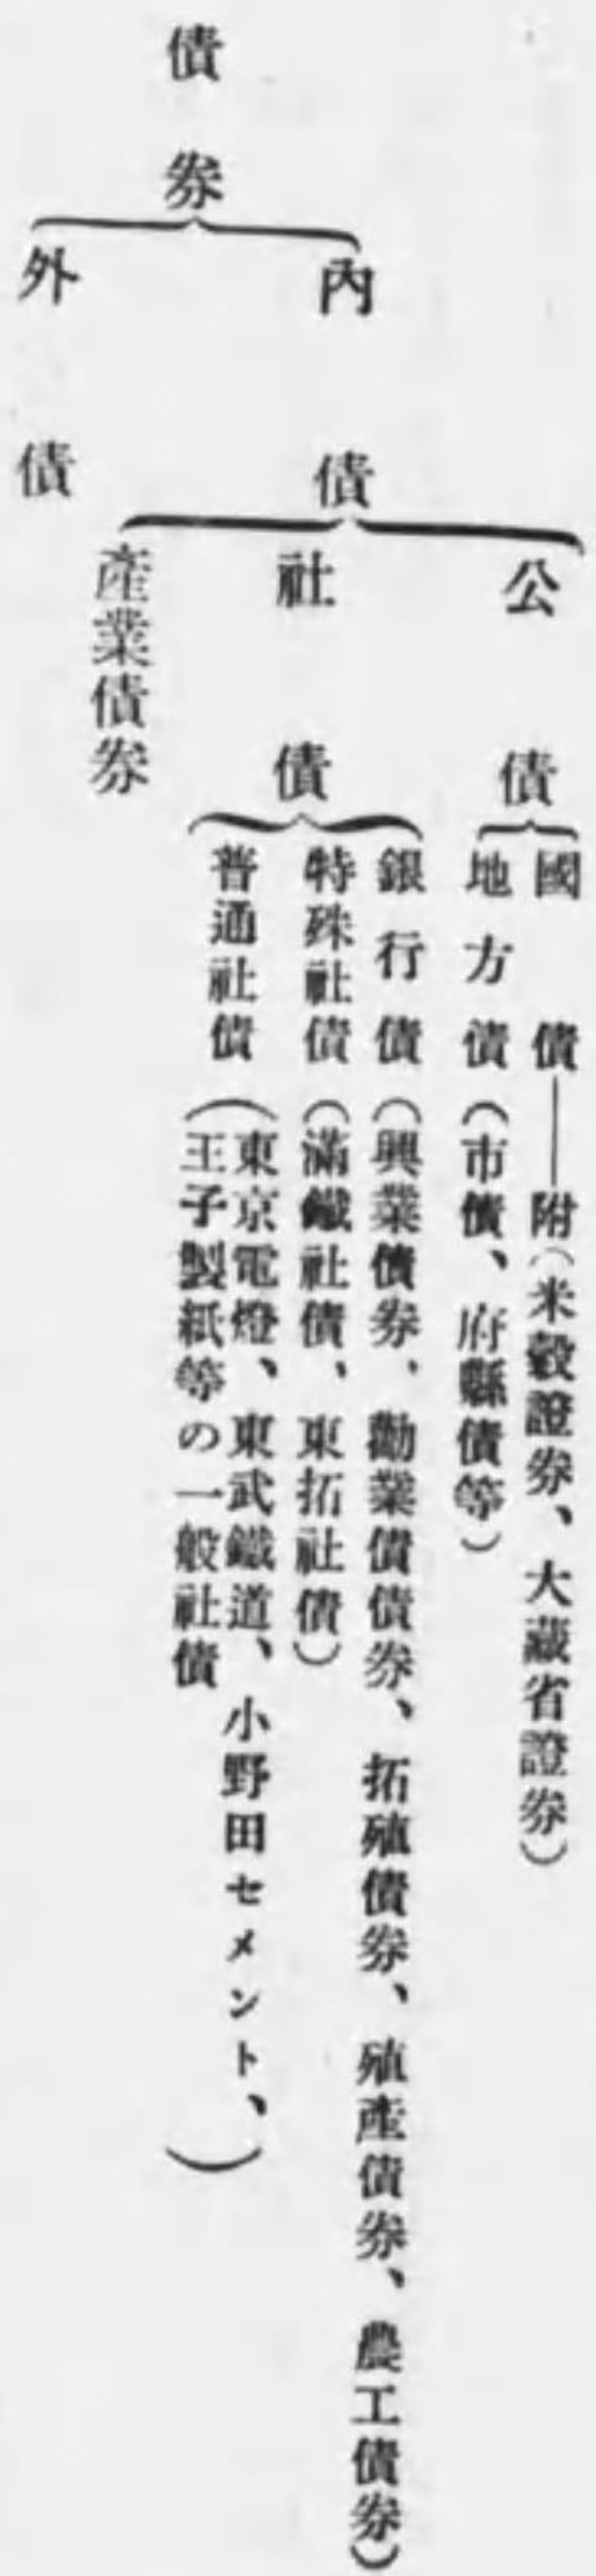 債券
內債
公債
國債――附(米穀證券、大藏省證券)
地方債(市債、府縣債等)
社債
銀行債(興業債券、勸業債債券、拓殖債券、殖產債券、農工債券)
特殊社債(滿鐵社債、東拓社債)
普通社債(東京電燈、東武鐵道、小野田セメント、
王子製紙等の一般社債)
產業債券
外債